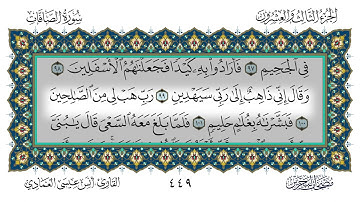 الجزء الثالث والعشرون
سورة الصافات
فِي الْجَحِيمِ ٩٧ فَأَرَادُوا بِهِ كَيْدًا فَجَعَلْنَاهُمُ الْأَسْفَلِينَ ٩٨
وَقَالَ إِنِّي ذَاهِبٌ إِلَىٰ رَبِّي سَيَهْدِينِ ٩٩ رَبِّ هَبْ لِي مِنَ الصَّالِحِينَ
١٠٠ فَبَشَّرْنَاهُ بِغُلَامٍ حَلِيمٍ ١٠١ فَلَمَّا بَلَغَ مَعَهُ السَّعْيَ قَالَ يَا بُنَيَّ
القارئ أنس عيسى العمادي
٤٤٩